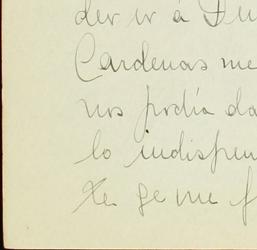 der ir á Du
Cardenas me
nos podía da
lo indispen
te. ge me f